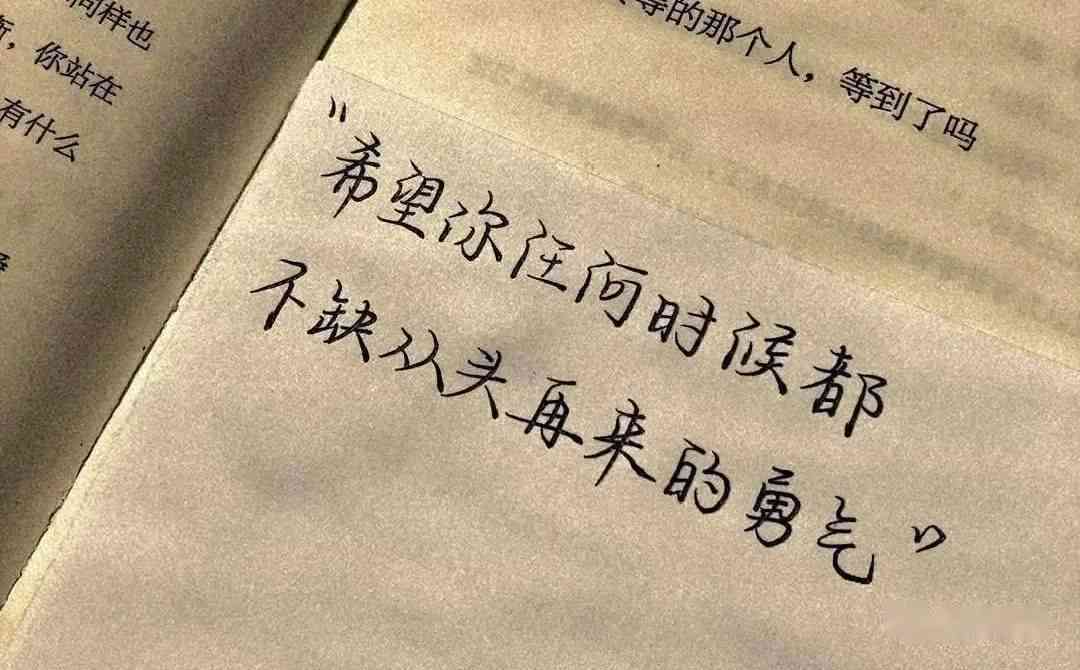 同样也
，你站在
有什么
等的那个人，等到了吗
"希望你任何时候都
不缺从头再来的勇气"